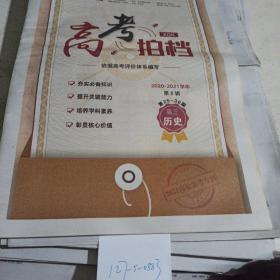 高考拍档
依据高考评价体系编写
夯实必备知识
提升关键能力
培养学科素养
彰显核心价值
2020-2021学年
第8辑
第29-36期
历史
127-5-0883